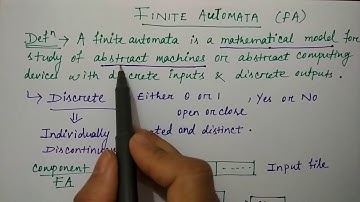 FINITE AUTOMATA (FA)
Defⁿ → A finite automata is a mathematical model for
study of abstract machines or abstract computing
device with discrete inputs & discrete outputs.
↳ Discrete Either 0 or 1, Yes or No
⇓ open or close
Individually and distinct.
Discontinu
Component Input file
FA